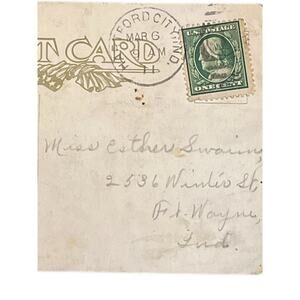 TFORD CITY, IND.
MAR 6
M
11
T CARD
U.S. POSTAGE
ONE CENT
Miss Esther Swaim,
2536 Winter St,
Ft. Wayne,
Ind.